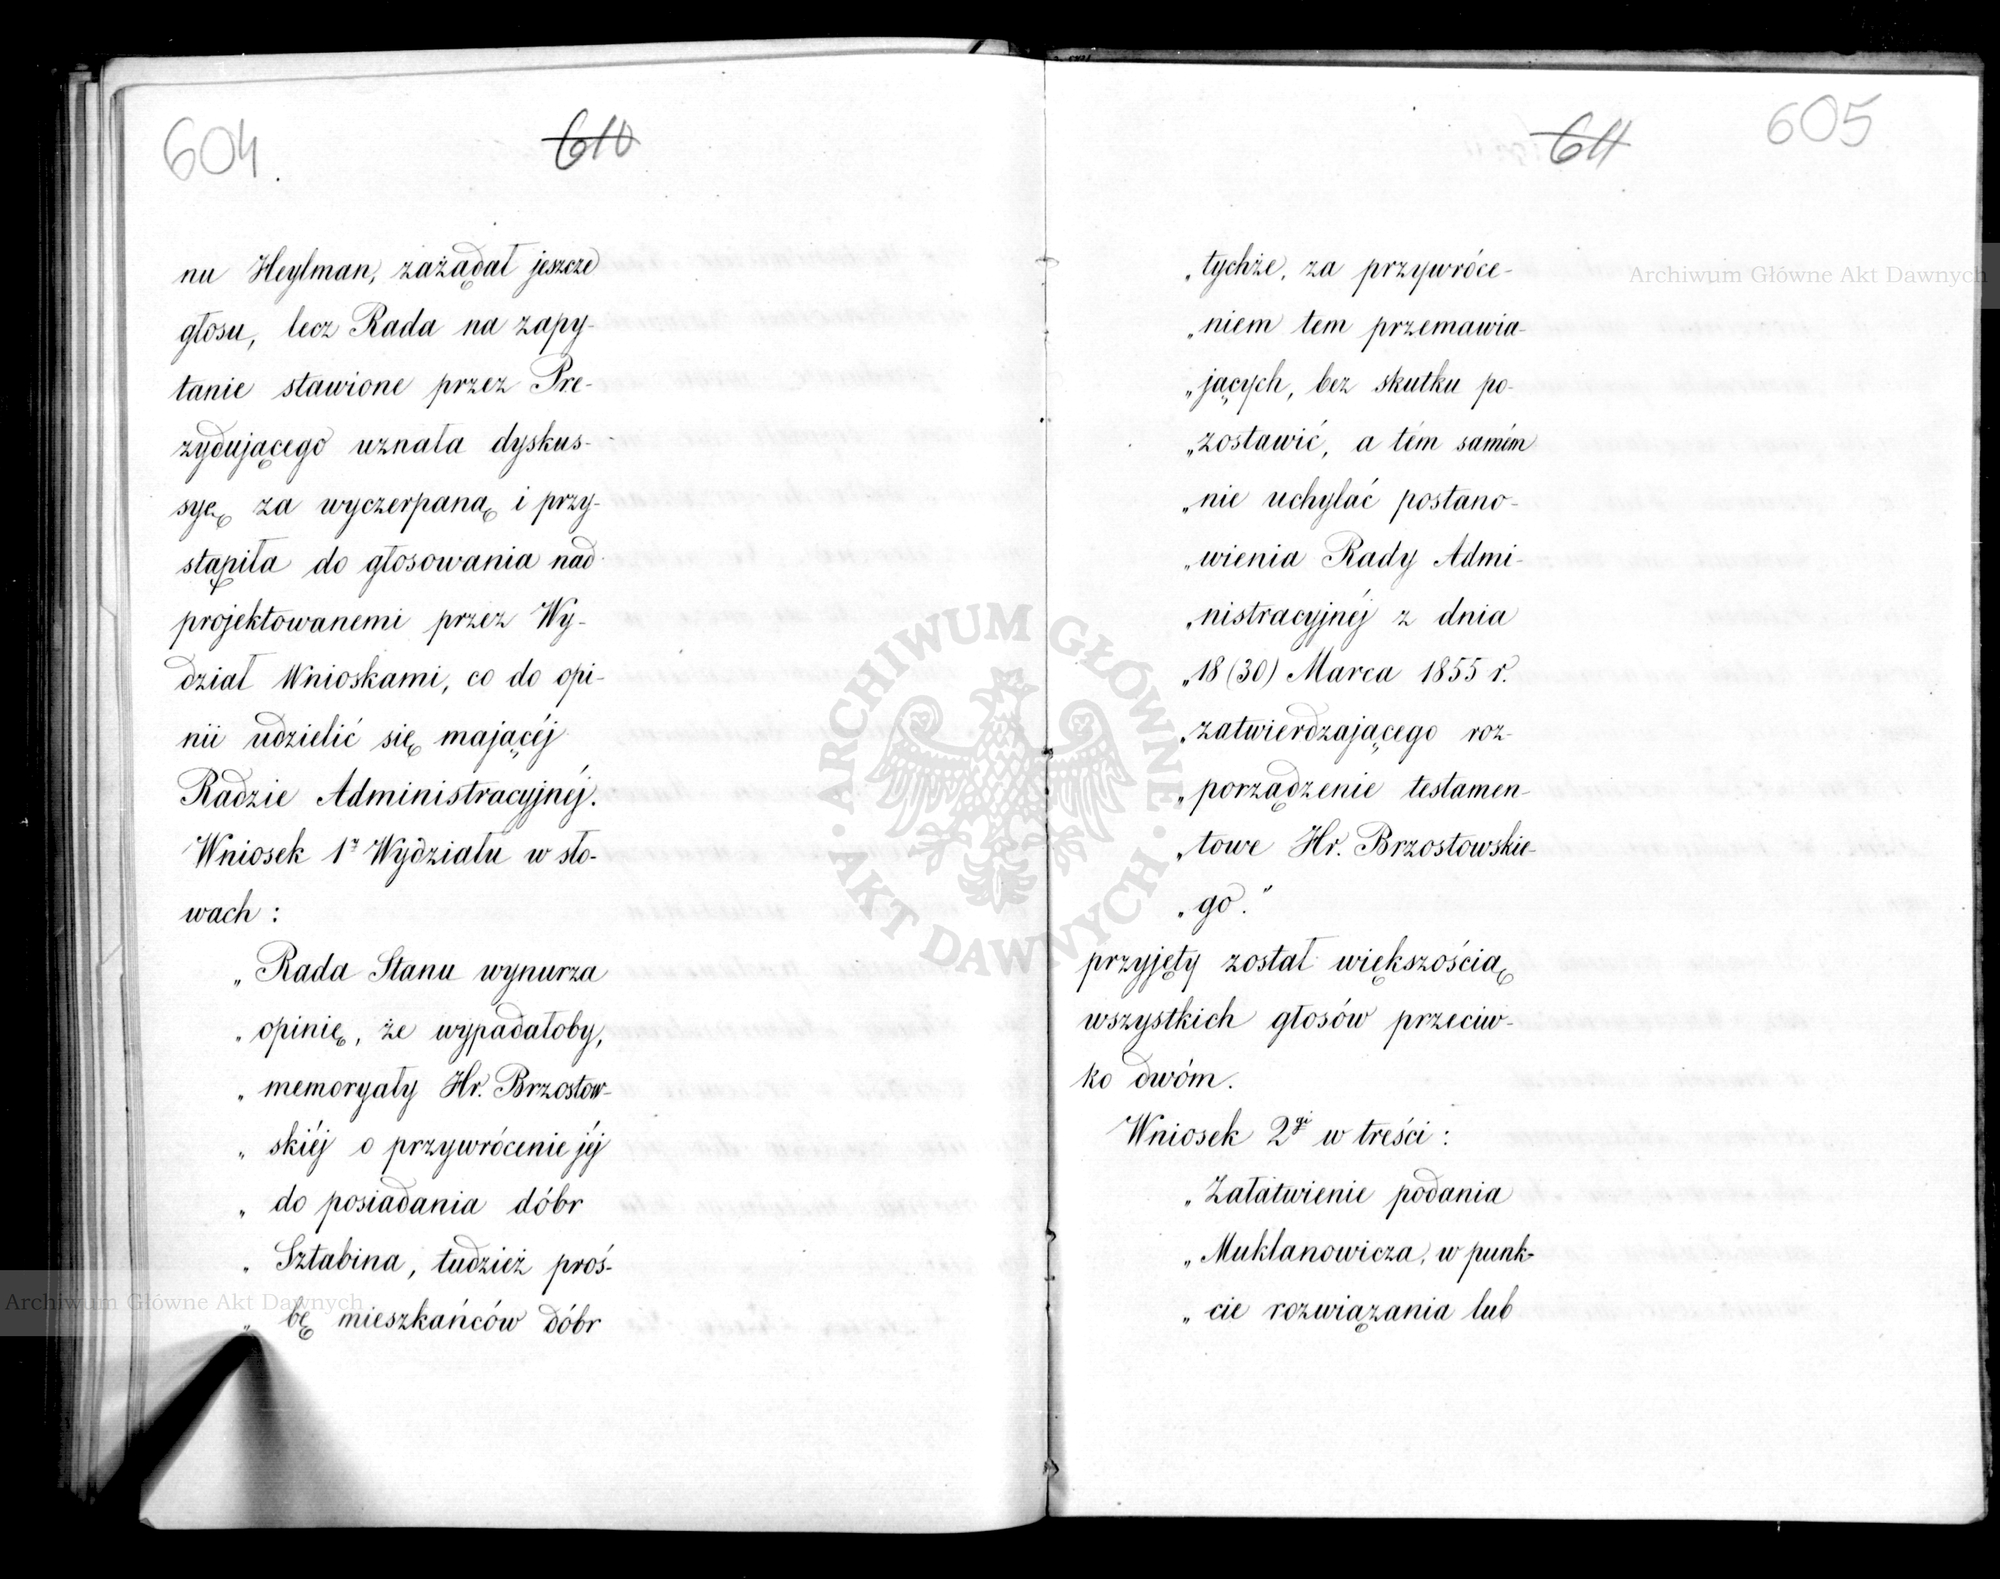 604
610
nu Heylman, zażądał jeszcze
głosu, lecz Rada na zapy-
tanie stawione przez Pre-
zydującego uznała dyskus-
syę za wyczerpaną i przy-
stąpiła do głosowania nad
projektowanemi przez Wy-
dział Wnioskami, co do opi-
nii udzielić się mającéj
Radzie Administracyjnéj.
Wniosek 1y Wydziału w sło-
wach:
„Rada Stanu wynurza
„opinię, że wypadałoby,
„memoryały Hr. Brzostow-
„skiéj o przywrócenie jéj
„do posiadania dóbr
„Sztabina, tudzież proś-
„bę mieszkańców dóbr
611
605
„tychże, za przywróce-
„niem tem przemawia-
„jących, bez skutku po-
„zostawić, a tém samém
„nie uchylać postano-
„wienia Rady Admi-
„nistracyjnéj z dnia
„18 (30) Marca 1855 r.
„zatwierdzającego roz-
„porządzenie testamen-
„towe Hr. Brzostowskie-
„go."
przyjęty został większością
wszystkich głosów przeciw-
ko dwóm.
Wniosek 2gi w treści:
„Załatwienie podania
„Muklanowicza, w punk-
„cie rozwiązania lub
Archiwum Główne Akt Dawnych
Archiwum Główne Akt Dawnych
ARCHIWUM GŁÓWNE · AKT DAWNYCH ·